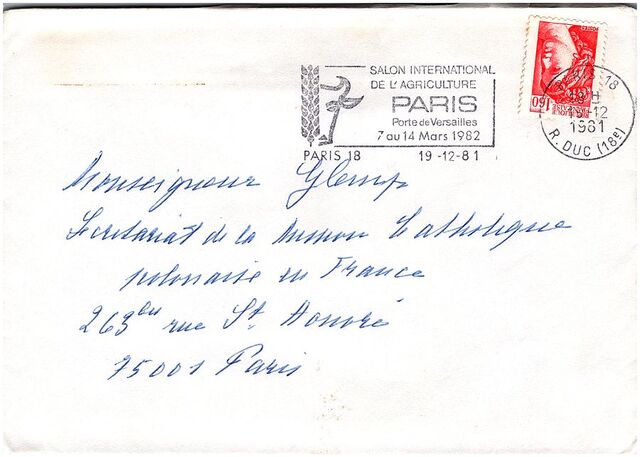 SALON INTERNATIONAL
DE L'AGRICULTURE
PARIS
Porte de Versailles
7 au 14 Mars 1982
PARIS 18 19-12-81
160
PARIS-18
18 H
19-12
1981
R. DUC (18e)
Monseigneur Glemp
Secrétariat de la Mission Catholique
polonaise en France
263 bis rue St Honoré
75001 Paris